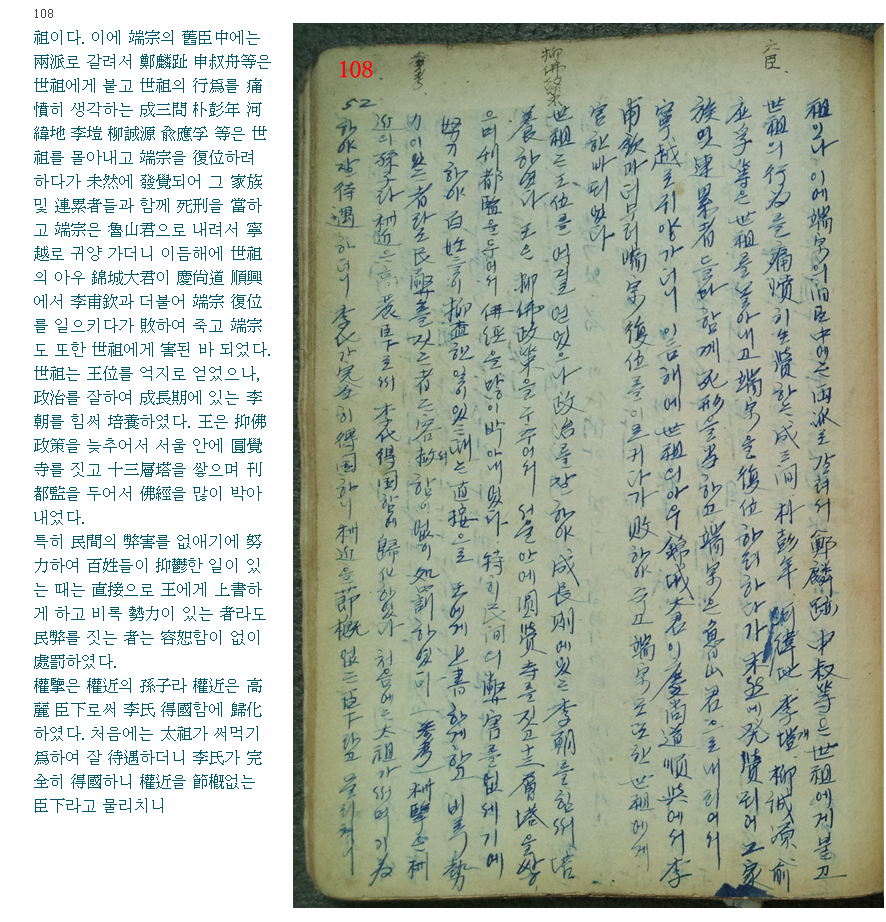 108
祖이다. 이에 端宗의 舊臣中에는
兩派로 갈려서 鄭麟趾 申叔舟等은
世祖에게 붙고 世祖의 行爲를 痛
憤히 생각하는 成三問 朴彭年 河
緯地 李塏 柳誠源 兪應孚 等은 世
祖를 몰아내고 端宗을 復位하려
하다가 未然에 發覺되어 그 家族
및 連累者들과 함께 死刑을 當하
고 端宗은 魯山君으로 내려서 寧
越로 귀양 가더니 이듬해에 世祖
의 아우 錦城大君이 慶尙道 順興
에서 李甫欽과 더불어 端宗 復位
를 일으키다가 敗하여 죽고 端宗
도 또한 世祖에게 害된 바 되었다.
世祖는 王位를 억지로 얻었으나,
政治를 잘하여 成長期에 있는 李
朝를 힘써 培養하였다. 王은 抑佛
政策을 늦추어서 서울 안에 圓覺
寺를 짓고 十三層塔을 쌓으며 刊
都監을 두어서 佛經을 많이 박아
내었다.
특히 民間의 弊害를 없애기에 努
力하여 百姓들이 抑鬱한 일이 있
는 때는 直接으로 王에게 上書하
게 하고 비록 勢力이 있는 者라도
民弊를 짓는 者는 容恕함이 없이
處罰하였다.
權擥은 權近의 孫子라 權近은 高
麗 臣下로써 李氏 得國함에 歸化
하였다. 처음에는 太祖가 써먹기
爲하여 잘 待遇하더니 李氏가 完
全히 得國하니 權近을 節槪없는
臣下라고 물리치니
108
六臣
祖이다 이에 端宗의 旧臣中에는 兩派로 갈려서 鄭麟趾 申叔等은 世祖에게 붙고
世祖의 行为를 痛憤히 生覺하는 成三问 朴彭年 河緯地 李塏 개 柳誠源 兪
应孚 等은 世祖를 몰아내고 端宗을 復位하려하다가 未然에 発覺되어 그 家
族 및 連累者들과 함께 死刑을 當하고 端宗은 魯山君으로 내리어서
寧越로 귀양가더니 이듬해에 世祖의 아우 錦城大君이 慶尚道 順興에서 李
甫欽과 더부러 端宗 復位를 이르키다가 敗하야 주고 端宗도 또한 世祖에게
害한바 되였다
抑佛政策
世祖는 王位를 억질로 얻었으나 政治를 잘하야 成長期에 있는 李朝를 힘써 培
養하였다 王은 抑佛政策을 누추어서 서울안에 圓覺寺를 짓고 十三層塔을 쌓
으며 刊都監을 두어서 佛經을 많이 박아내였다 特히 民间의 弊害를 없세기에
努力하야 百姓들이 抑鬱한 일이 있는 때는 直接으로 王에게 上書하게하고 비록 勢
参考
力이 있는 者라도 民弊를 짓는 者는 容恕함이 없이 処罰하였다 (参考) 權擥은 權
近의 孫子라 權近은 高麗臣下로써 李氏得國함에 歸化하였다 처음에는 太祖가 써먹기 为
52
하야 잘 待遇하더니 李氏가 完全히 得國하니 權近을 節概없는 臣下라고 물리치니